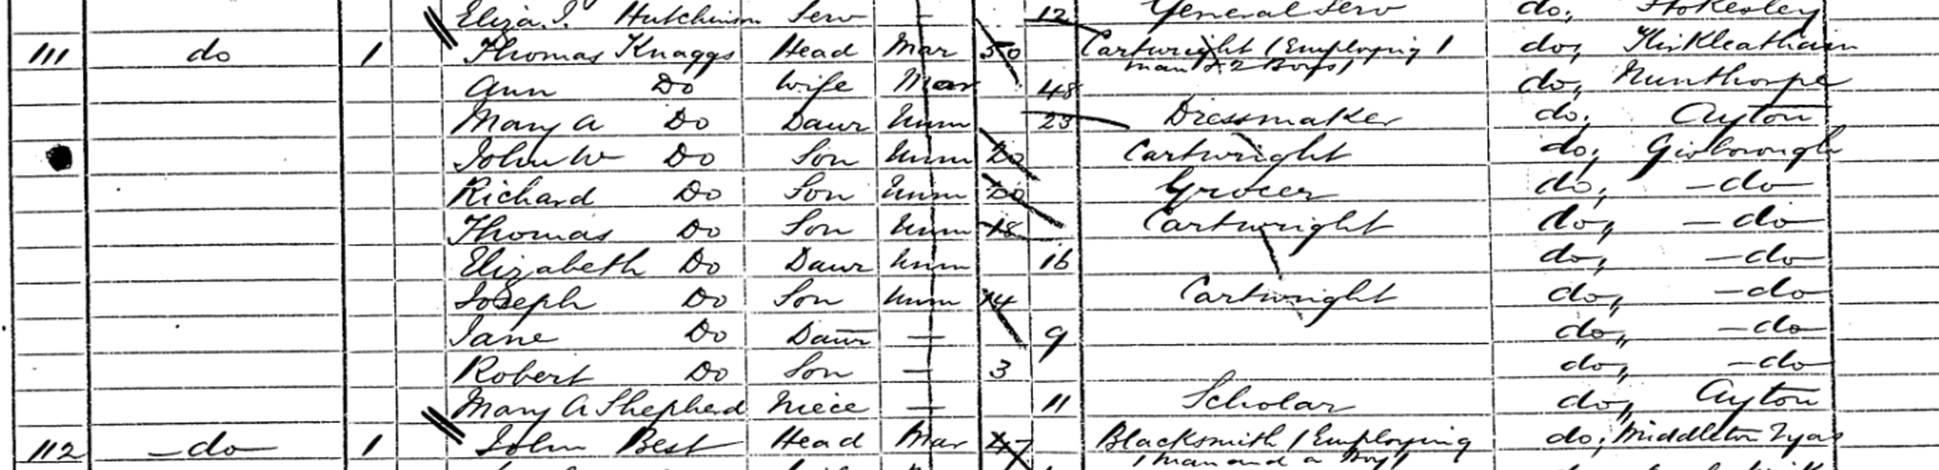 Eliza J. Hutchinson Serv — 12 General Serv do, Stokesley
111 do 1 Thomas Knaggs Head Mar 50 Cartwright (Employing 1 man & 2 Boys) do, Kirkleatham
Ann Do Wife Mar 48 do, Nunthorpe
Mary A Do Daur Unm 23 Dressmaker do, Ayton
John W Do Son Unm 20 Cartwright do, Gisborough
Richard Do Son Unm 20 Grocer do, — do
Thomas Do Son Unm 18 Cartwright do, — do
Elizabeth Do Daur Unm 16 do, — do
Joseph Do Son Unm 14 Cartwright do, — do
Jane Do Daur — 9 do, — do
Robert Do Son — 3 do, — do
Mary A Shepherd Niece — 11 Scholar do, Ayton
112 — do 1 John Best Head Mar Blacksmith (Employing 1 man and a Boy) do, Middleton Tyas